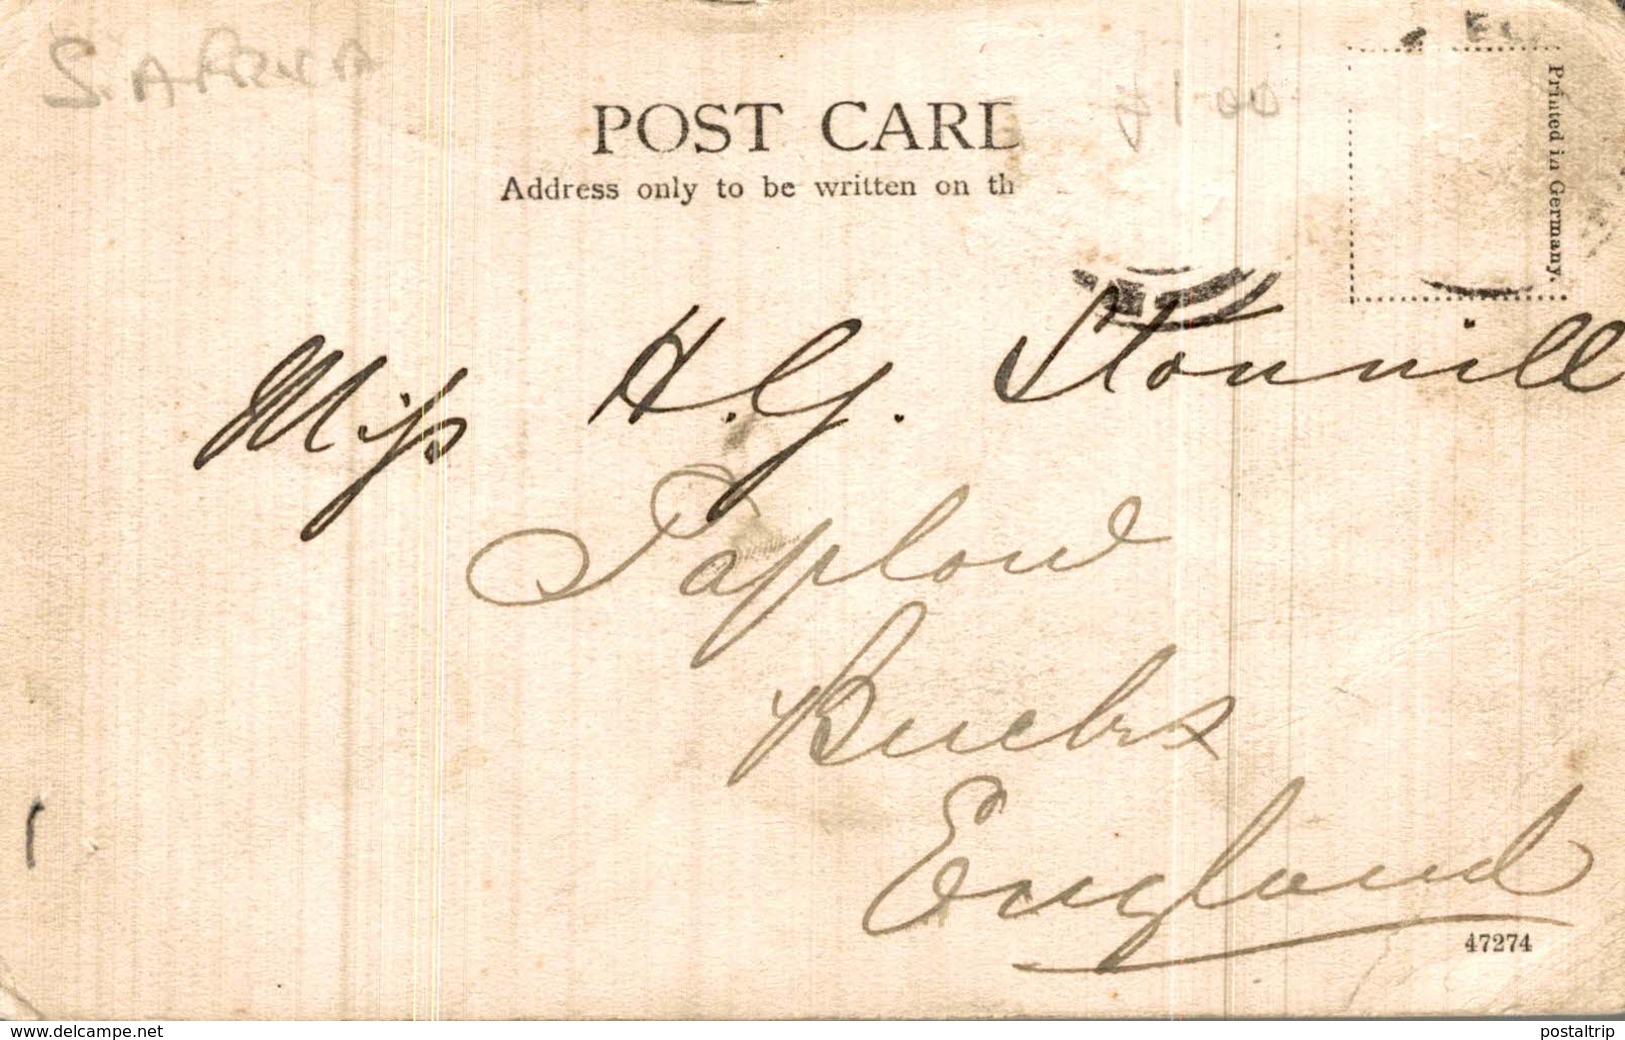 S. AFRICA
POST CARD
1-00
Address only to be written on th
Printed in Germany.
Miss H. G. Stonnill
Taplow
Bucks
England
47274
www.delcampe.net
postaltrip